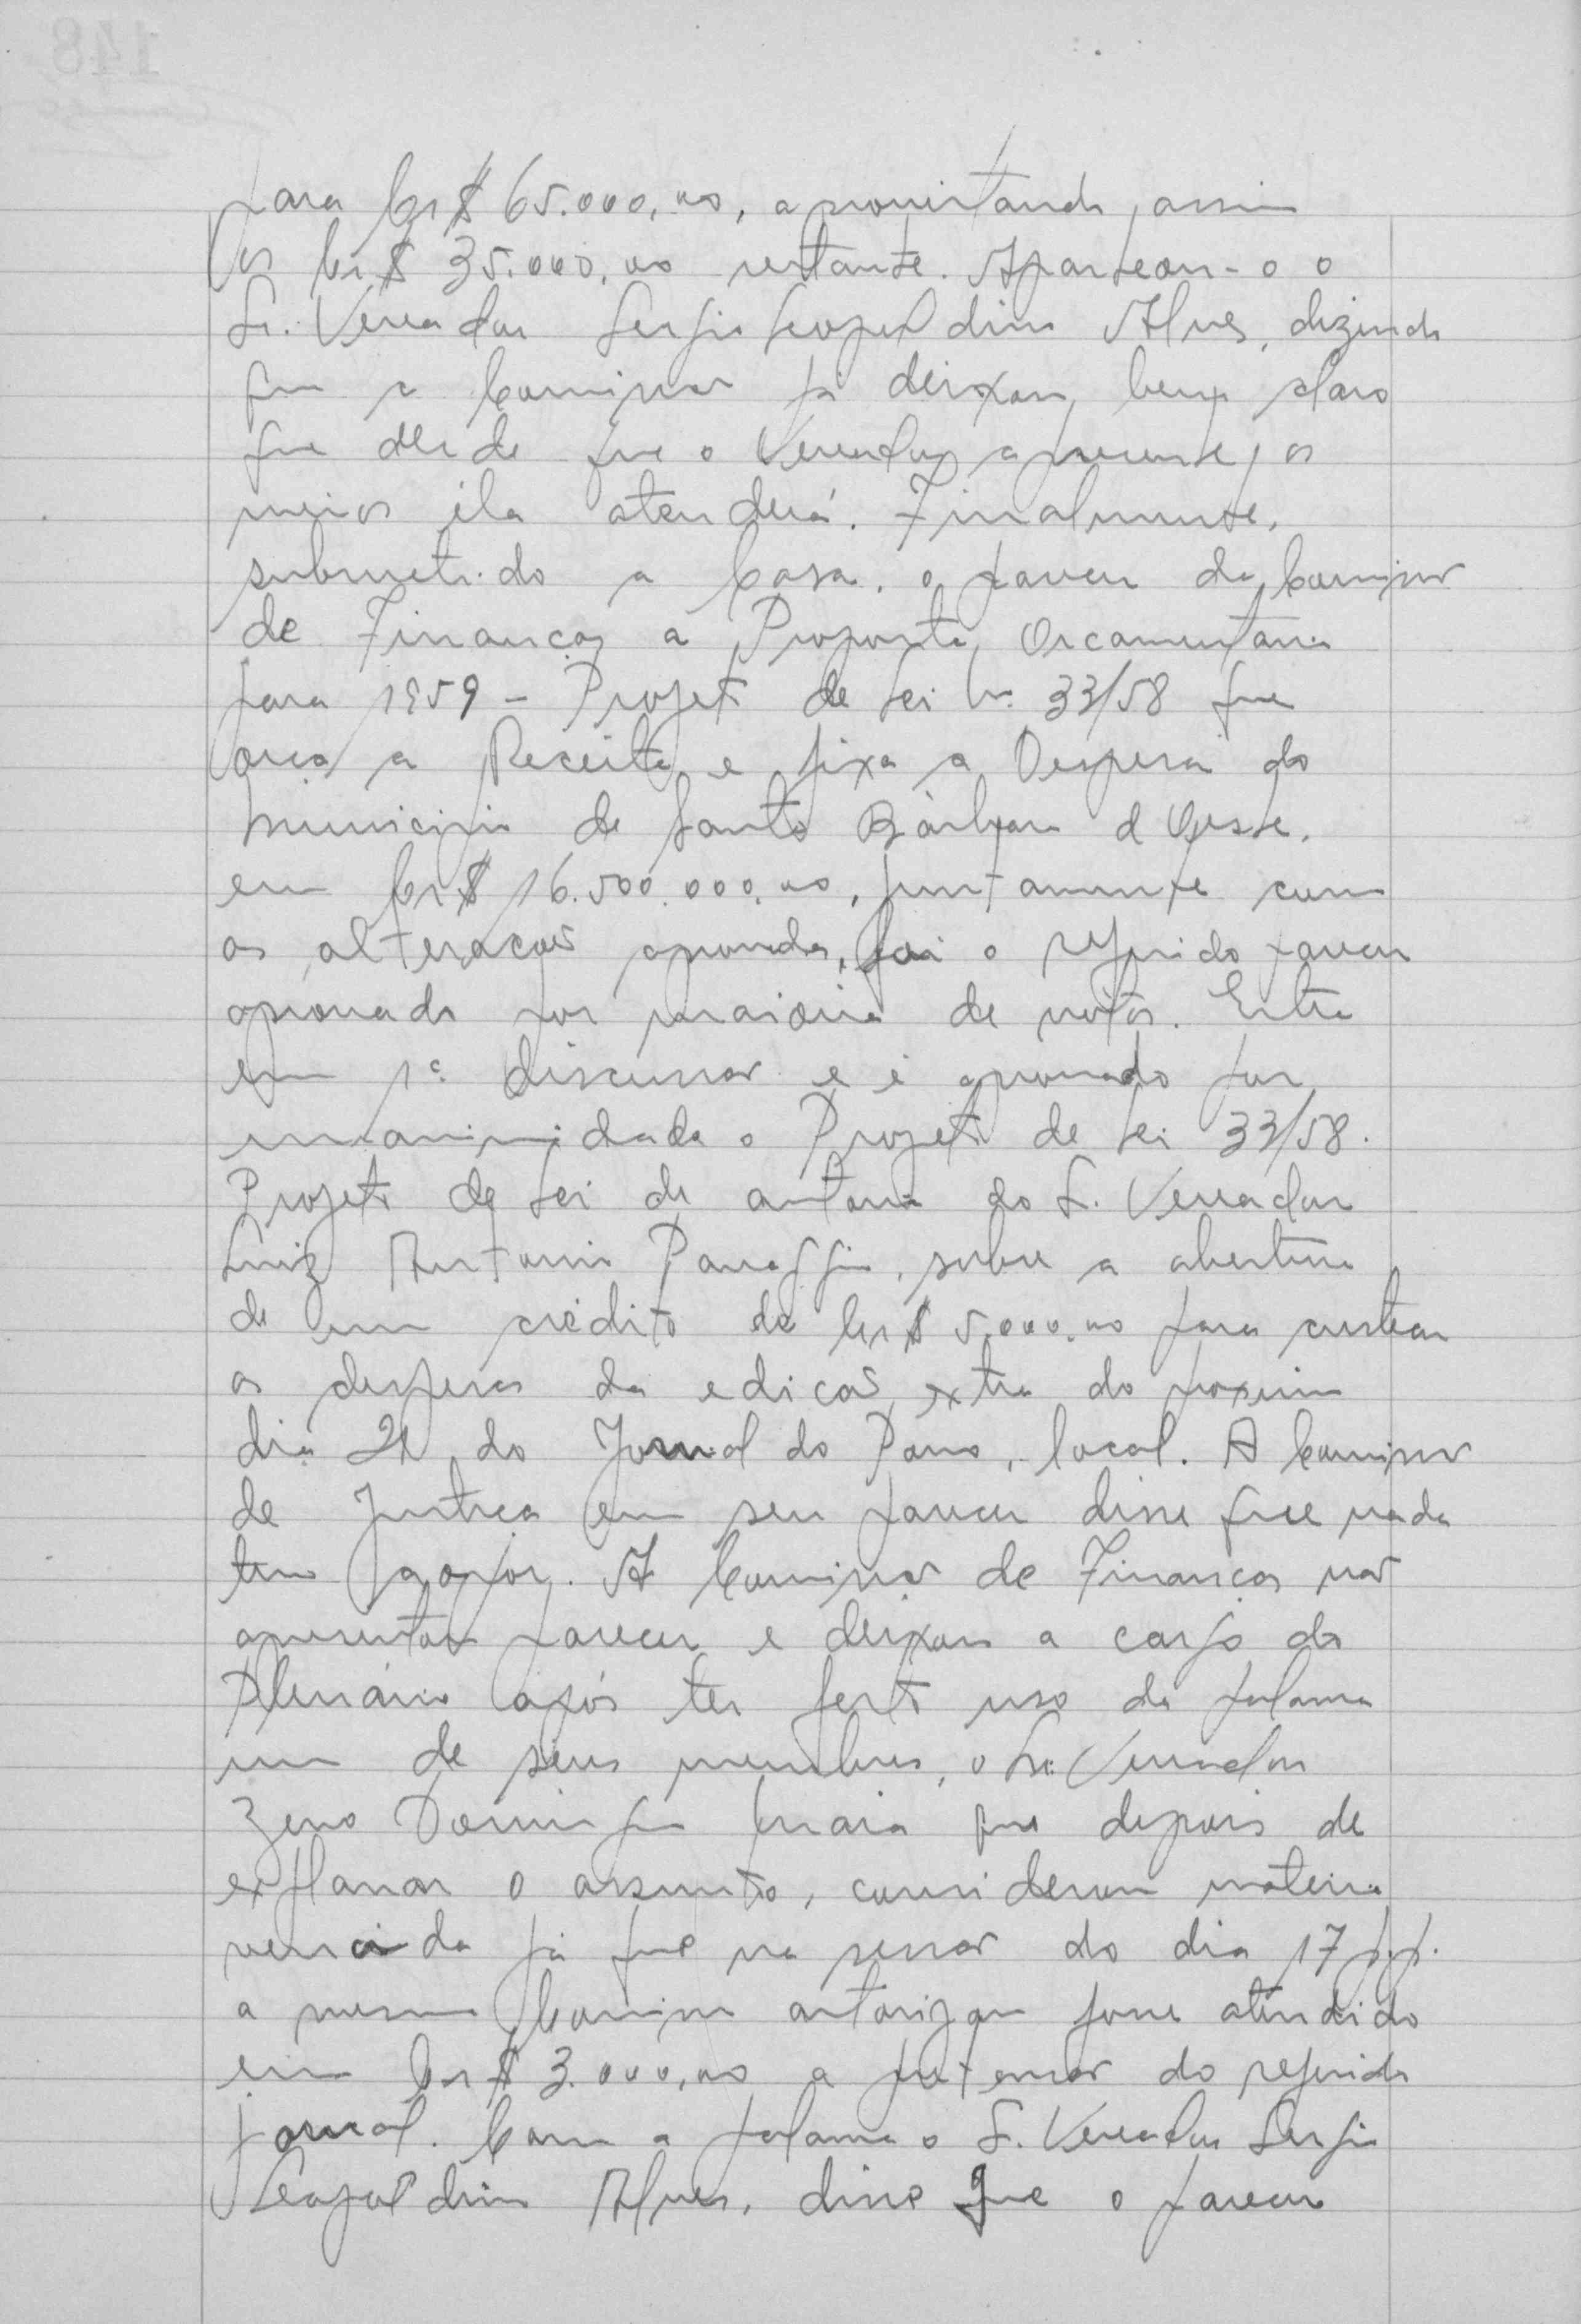 para Cr$ 65.000,00, aproveitando, assim
os Cr$ 35.000,00 restante. Aparteou-o o
Sr. Vereador Sergio Leopoldino Alves, dizendo
que a Comissão já deixou bem claro
que desde que o Vereador apresente os
meios ela atenderá. Finalmente,
submetido a Casa, o parecer da Comissão
de Finanças a Proposta Orcamentaria
para 1959 - Projeto de Lei Nº 33/58 que
orça a Receita e fixa a Despesa do
Municipio de Santa Bárbara d'Oeste,
em Cr$ 16.500.000,00, juntamente com
as alteracões aprovadas, foi o referido parecer
aprovado por maioria de votos. Entra
em 1ª discussão e é aprovado por
unanimidade o Projeto de Lei 33/58.
Projeto de Lei de autoria do S. Vereador
Luiz Antonio Panaggio, sobre a abertura
de um crédito de Cr$ 5.000,00 para custear
as despesas da edicão extra do proximo
dia 21 do Jornal do Povo, local. A Comissão
de Justiça em seu parecer disse que nada
tem a opor. A Comissão de Finanças não
apresentou parecer e deixou a cargo do
Plenário após ter feito uso da palavra
um de seus membros, o Sr. Vereador
Zeno Domingo Maia que depois de
explanar o assunto, considerou materia
vencida já que na sessão do dia 17 p.p.
a mesma Comissão autorizou fosse atendido
em Cr$ 3.000,00 a pretensão do referido
jornal. Com a palavra o S. Vereador Sergio
Leopoldino Alves, disse que o parecer